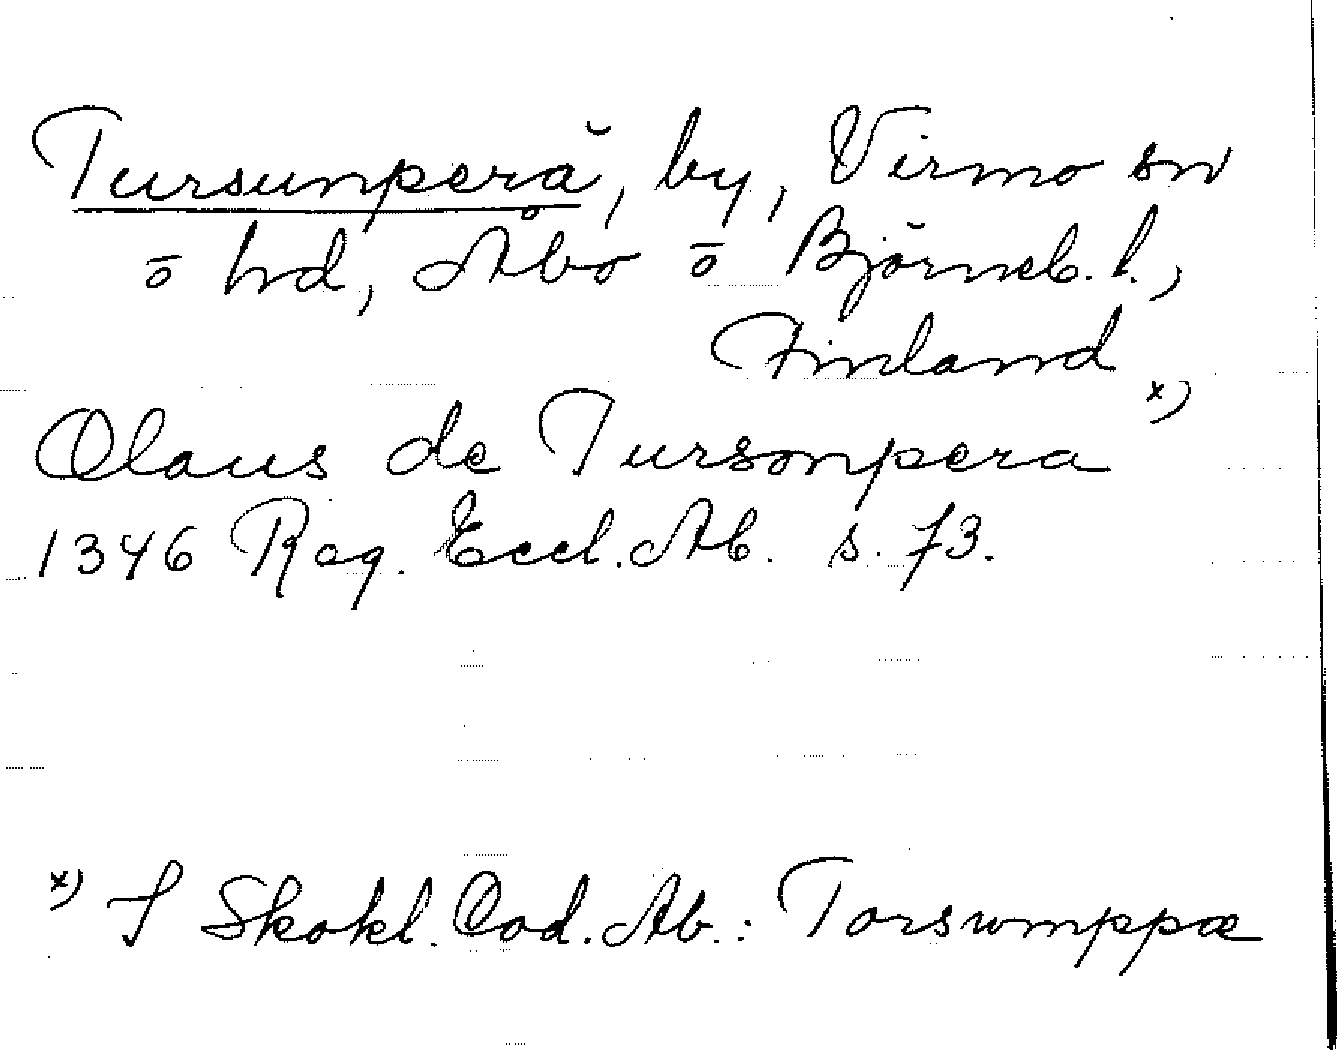 Tursunperä, by, Virmo sn
o hd, Åbo o Björneb. l.,
Finland
Olaus de Tursonpera x)
1346 Reg. Eccl. Ab. s. 73.
x) I Skokl. Cod. Ab.: Torswmppæ